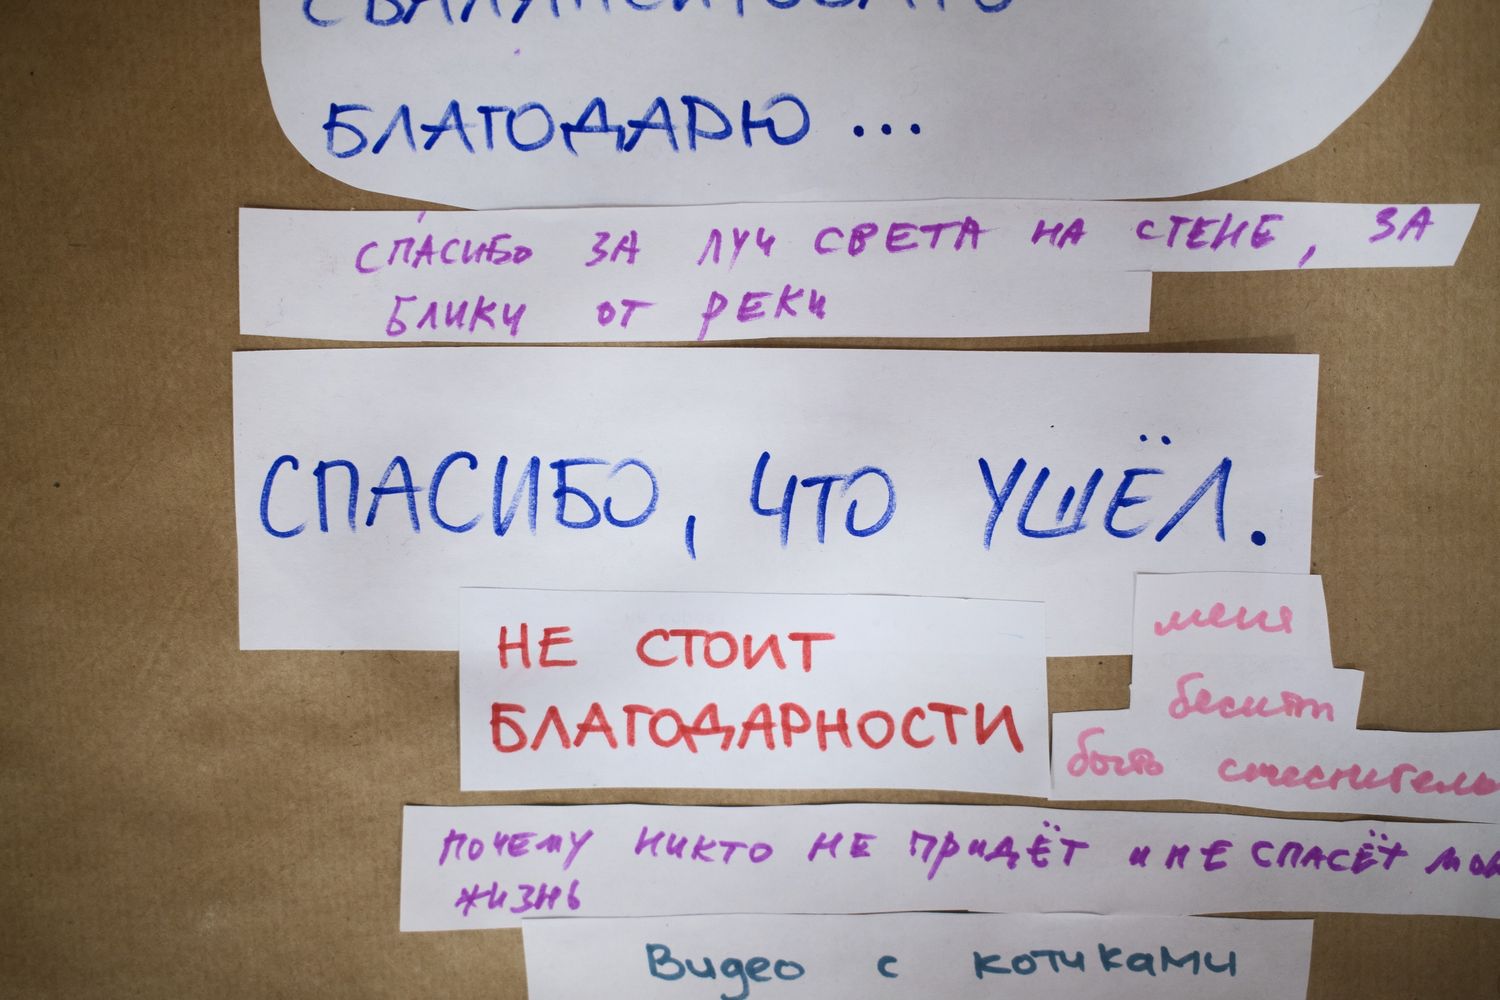 БЛАГОДАРЮ ...
СПАСИБО ЗА ЛУЧ СВЕТА НА СТЕНЕ, ЗА
БЛИКИ ОТ РЕКИ
СПАСИБО, ЧТО УШЁЛ.
НЕ СТОИТ
БЛАГОДАРНОСТИ
меня
бесит
быть
ПОЧЕМУ НИКТО НЕ ПРИДЁТ И НЕ СПАСЁТ
ЖИЗНЬ
Видео с котиками